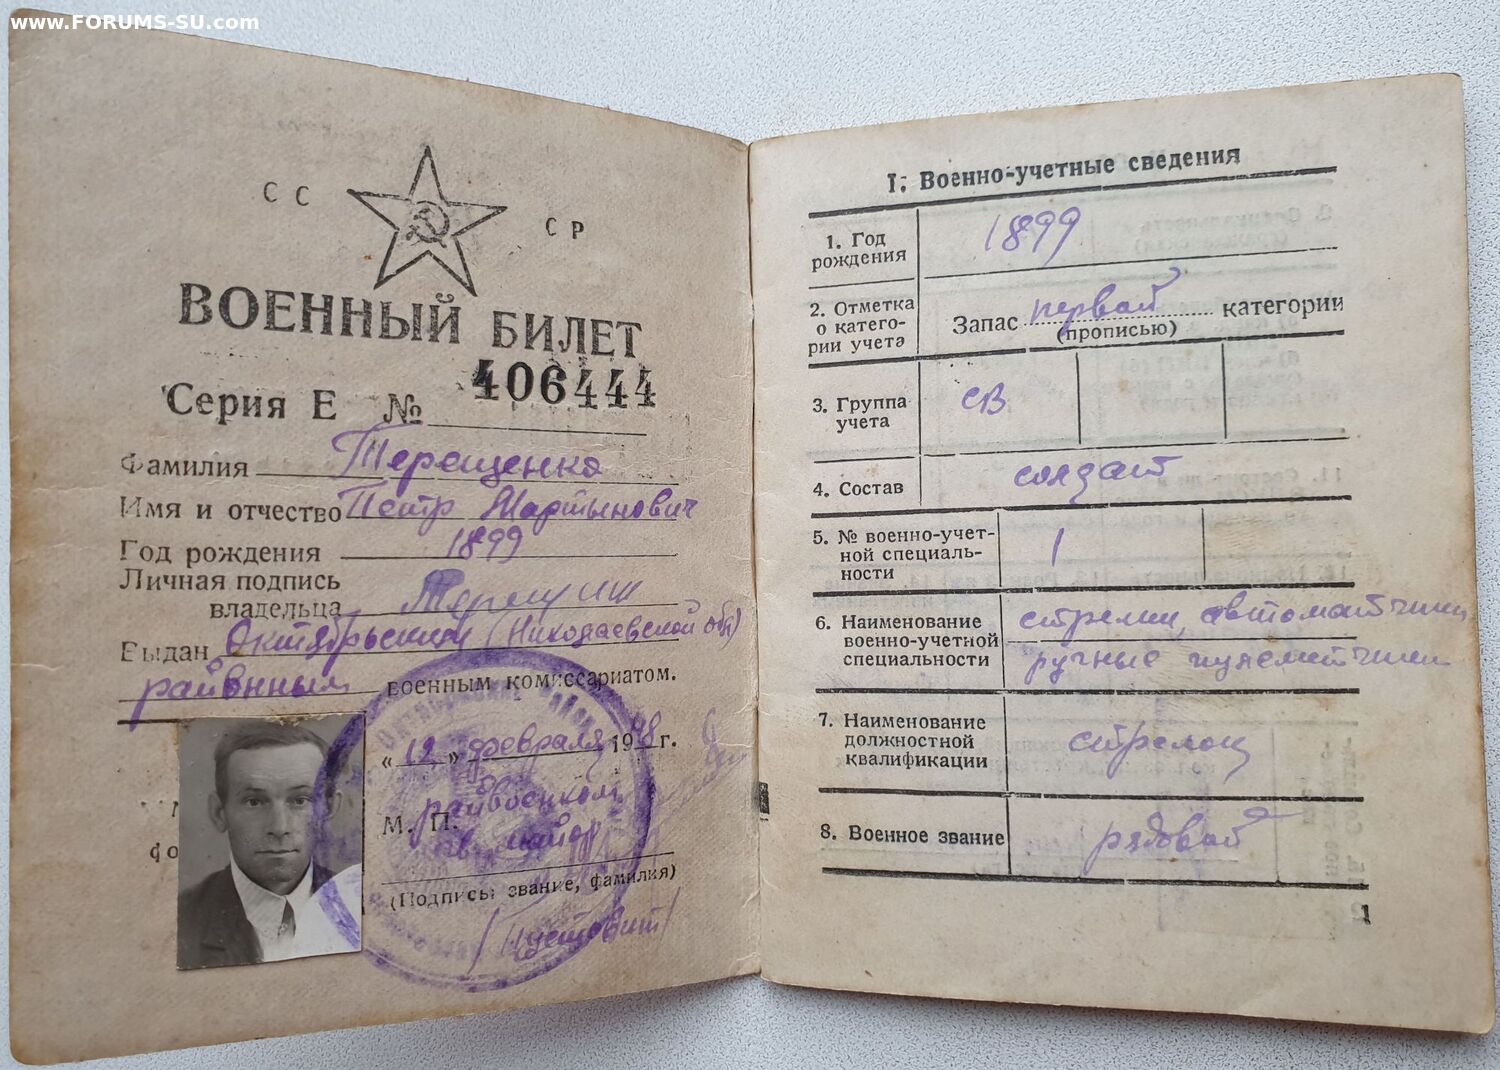 www.FORUMS-SU.com
СС СР
ВОЕННЫЙ БИЛЕТ
Серия Е № 406444
Фамилия Терещенко
Имя и отчество Петр Мартынович
Год рождения 1899
Личная подпись
владельца
Выдан Октябрьским (Николаевской обл)
районным военным комиссариатом.
«12» февраля 1948 г.
райвоенком
М. П.
майор
(Подпись, звание, фамилия)
/Пустовит/
I. Военно-учетные сведения
1. Год
рождения
1899
2. Отметка
о катего-
рии учета
Запас первой категории
(прописью)
3. Группа
учета
СВ
4. Состав
солдат
5. № военно-учет-
ной специаль-
ности
1
6. Наименование
военно-учетной
специальности
стрелки, автоматчики
ручные пулеметчики
7. Наименование
должностной
квалификации
стрелок
8. Военное звание
рядовой
1